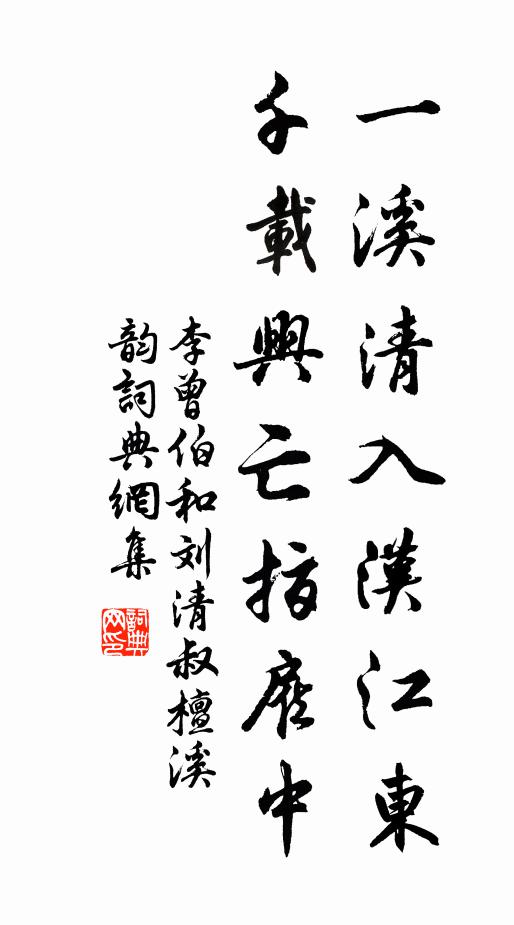 一溪清入漢江東
千載興亡指
中
李曾伯和刘清叔檀溪
韵詞典網集
詞典